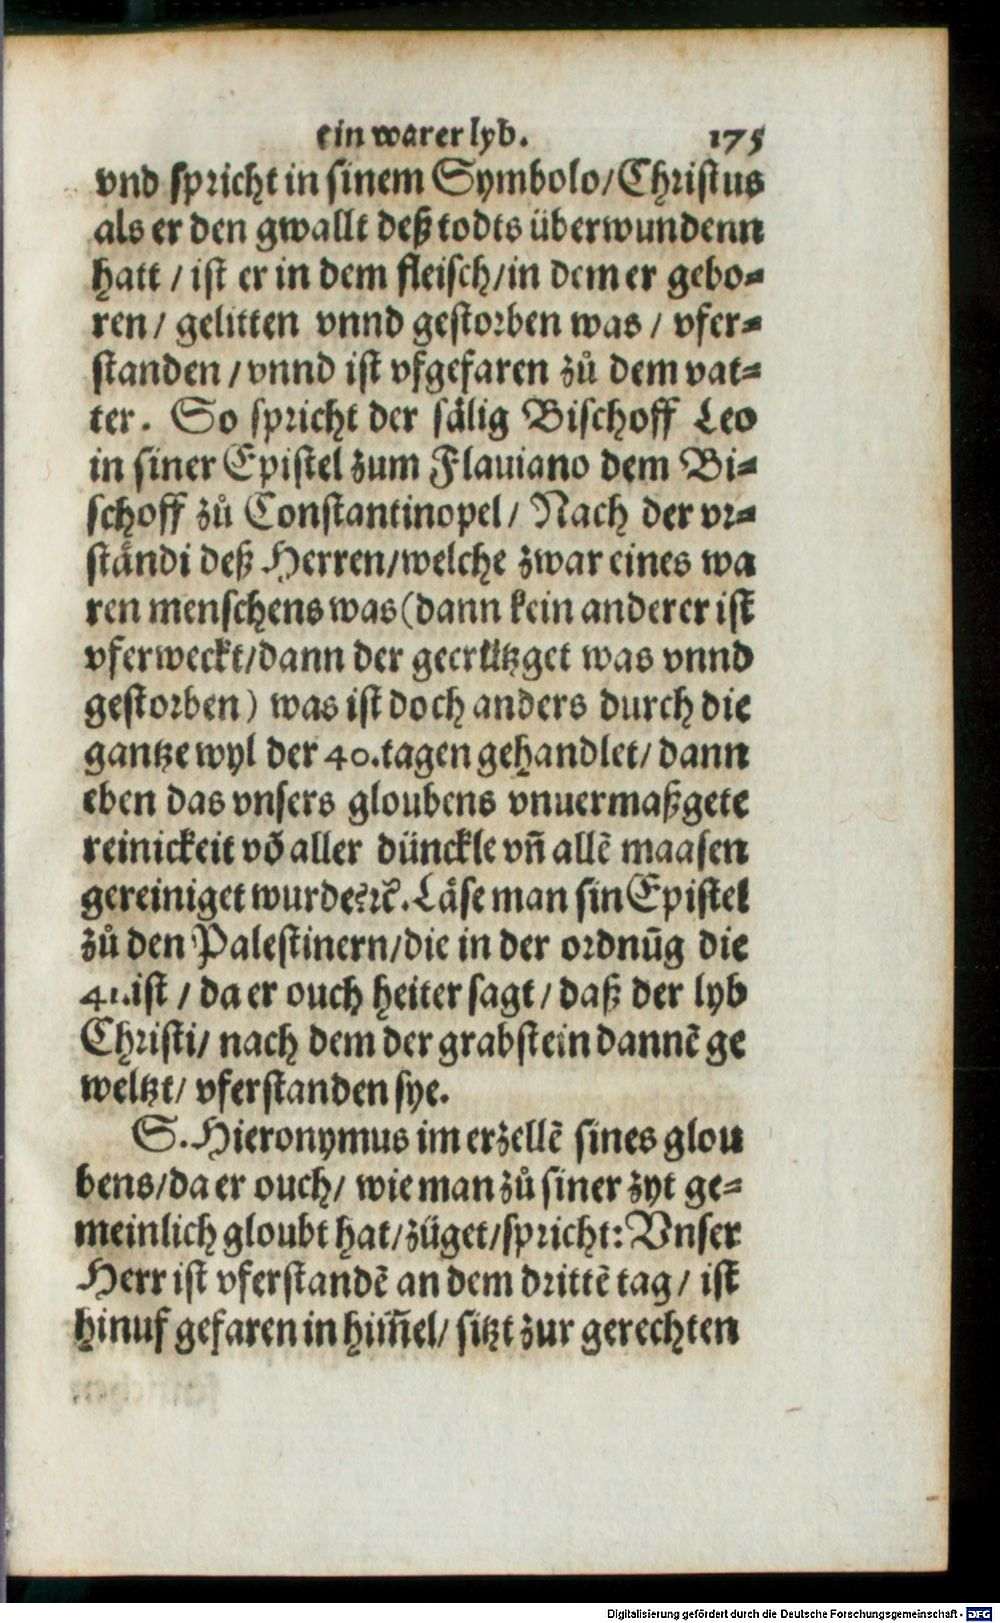 ein warer lyb. 175
vnd spricht in sinem Symbolo/Christus
als er den gwallt deß todts überwundenn
hatt / ist er in dem fleisch/in dem er gebo⸗
ren/ gelitten vnnd gestorben was / vfer⸗
standen / vnnd ist vfgefaren zů dem vat⸗
ter. So spricht der sälig Bischoff Leo
in siner Epistel zum Flauiano dem Bi⸗
schoff zů Constantinopel/ Nach der vr⸗
ständi deß Herren/welche zwar eines wa
ren menschens was(dann kein anderer ist
vferweckt/dann der geerützget was vnnd
gestorben) was ist doch anders durch die
gantze wyl der 40.tagen gehandlet/ dann
eben das vnsers gloubens vnuermaßgete
reinickeit võ aller dünckle vñ allẽ maasen
gereiniget wurde?ꝛc̃. Läse man sin Epistel
zů den Palestinern/die in der ordnũg die
41.ist / da er ouch heiter sagt/ daß der lyb
Christi/ nach dem der grabstein dannẽ ge
weltzt/ vferstanden sye.
S. Hieronymus im erzellẽ sines glou
bens/da er ouch/ wie man zů siner zyt ge⸗
meinlich gloubt hat/züget/spricht: Vnser
Herr ist vferstandẽ an dem drittẽ tag/ ist
hinuf gefaren in him̃el/ sitzt zur gerechten
Digitalisierung gefördert durch die Deutsche Forschungsgemeinschaft - DFG